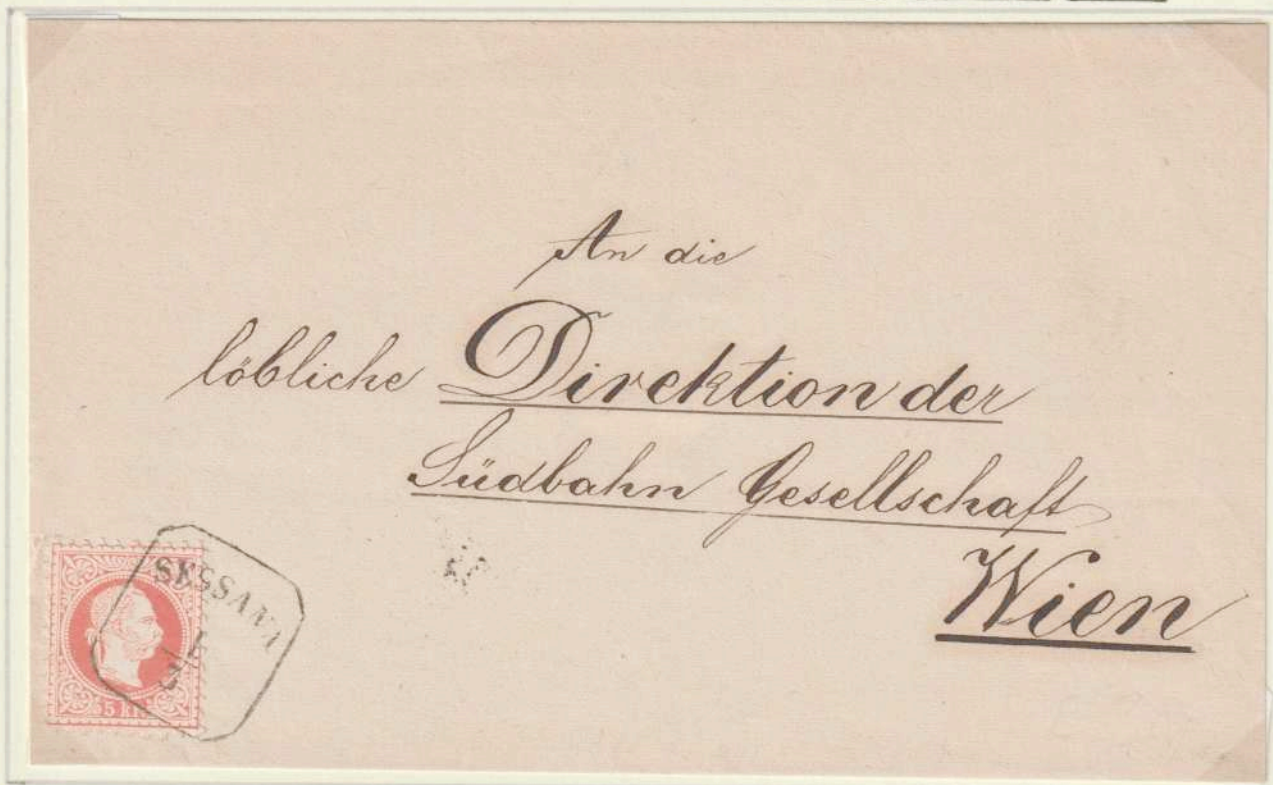 An die
löbliche Direktion der
Südbahn Gesellschaft
Wien
SESSANA
5 KR